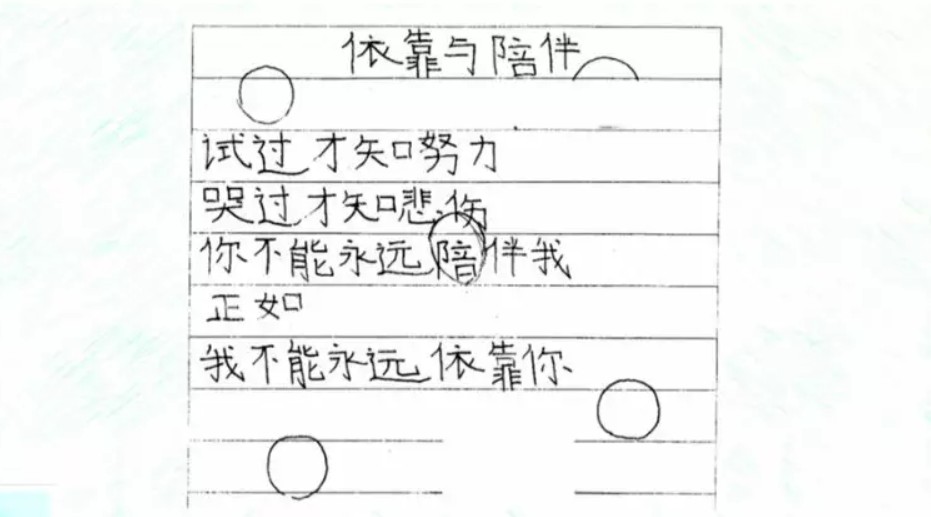 依靠与陪伴
试过才知努力
哭过才知悲伤
你不能永远陪伴我
正如
我不能永远依靠你